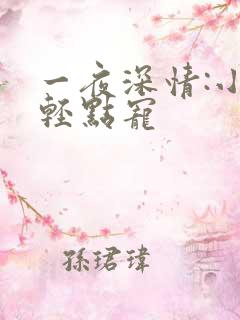 一夜深情:小
輕點寵
孫珺瑋